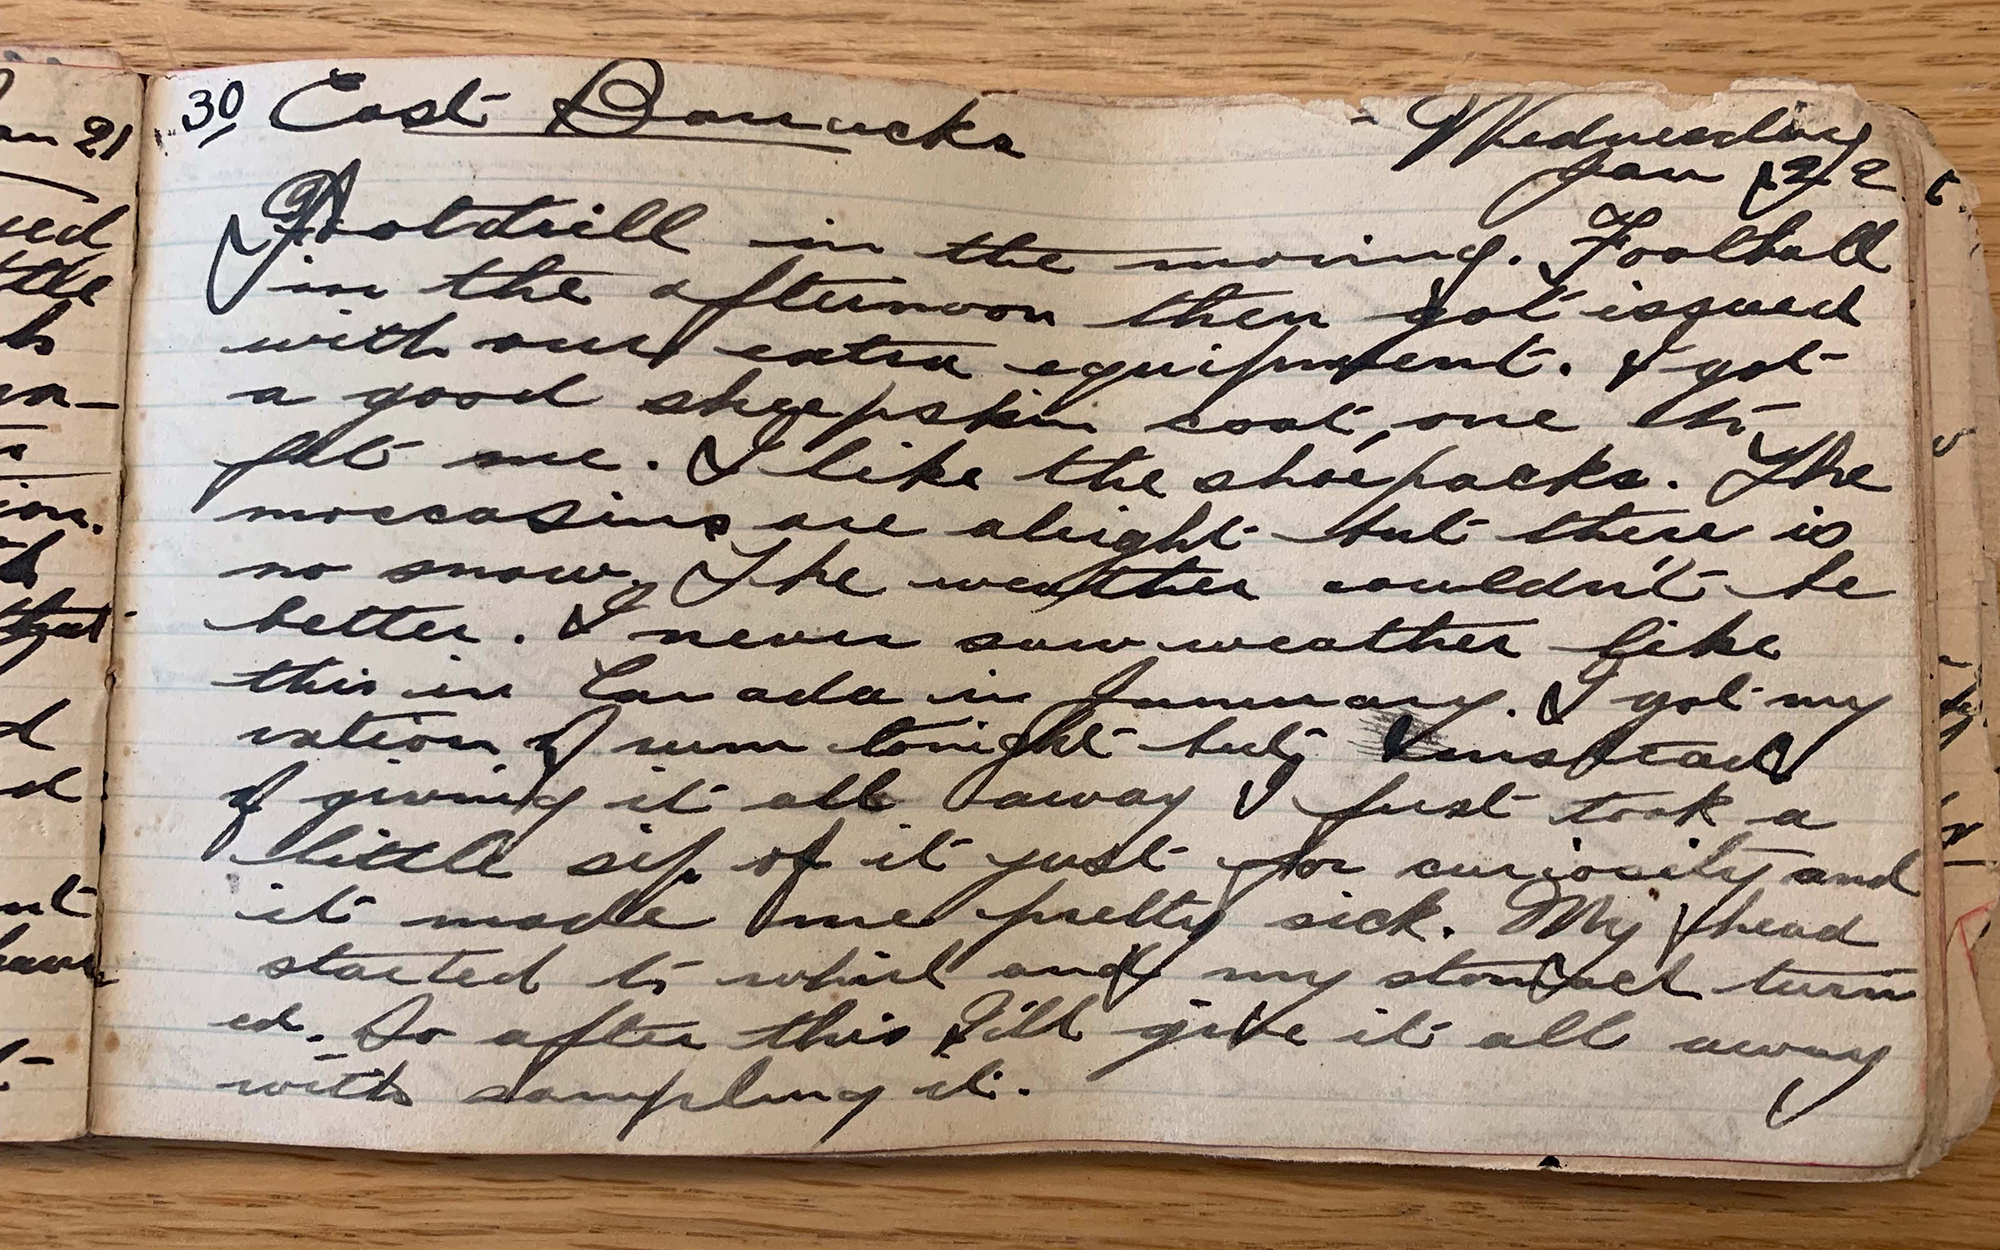 an 21
30 East Barrucks
Wednesday
Jan 22
Footdrill in the morning. Football
in the afternoon then got issued
with our extra equipment. I got
a good sheepskin coat, one to
fit me. I like the shoepacks. The
moccasins are alright but there is
no snow. The weather couldn't be
better. I never saw weather like
this in Canada in January. I got my
ration of rum tonight but instead
of giving it all away I just took a
little sip of it just for curiosity and
it made me pretty sick. My head
started to whirl and my stomach turn
ed. So after this I'll give it all away
with sampling it.